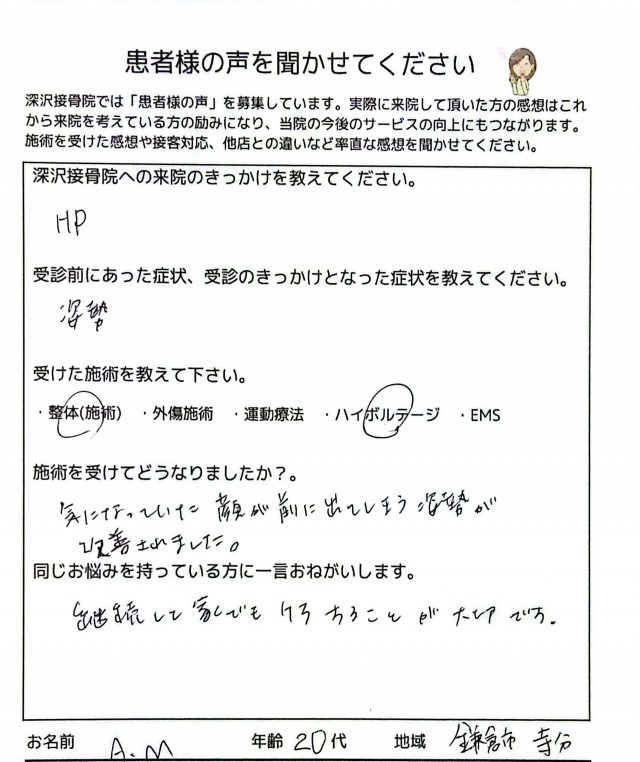 患者様の声を聞かせてください
深沢接骨院では「患者様の声」を募集しています。実際に来院して頂いた方の感想はこれ
から来院を考えている方の励みになり、当院の今後のサービスの向上にもつながります。
施術を受けた感想や接客対応、他店との違いなど率直な感想を聞かせてください。
深沢接骨院への来院のきっかけを教えてください。
HP
受診前にあった症状、受診のきっかけとなった症状を教えてください。
姿勢
受けた施術を教えて下さい。
・整体(施術) ・外傷施術 ・運動療法 ・ハイボルテージ ・EMS
施術を受けてどうなりましたか?。
気になっていた 顔が前に出てしまう姿勢が
改善されました。
同じお悩みを持っている方に一言おねがいします。
継続して家でも することが大切です。
お名前 A.M 年齢 20代 地域 鎌倉市 寺分